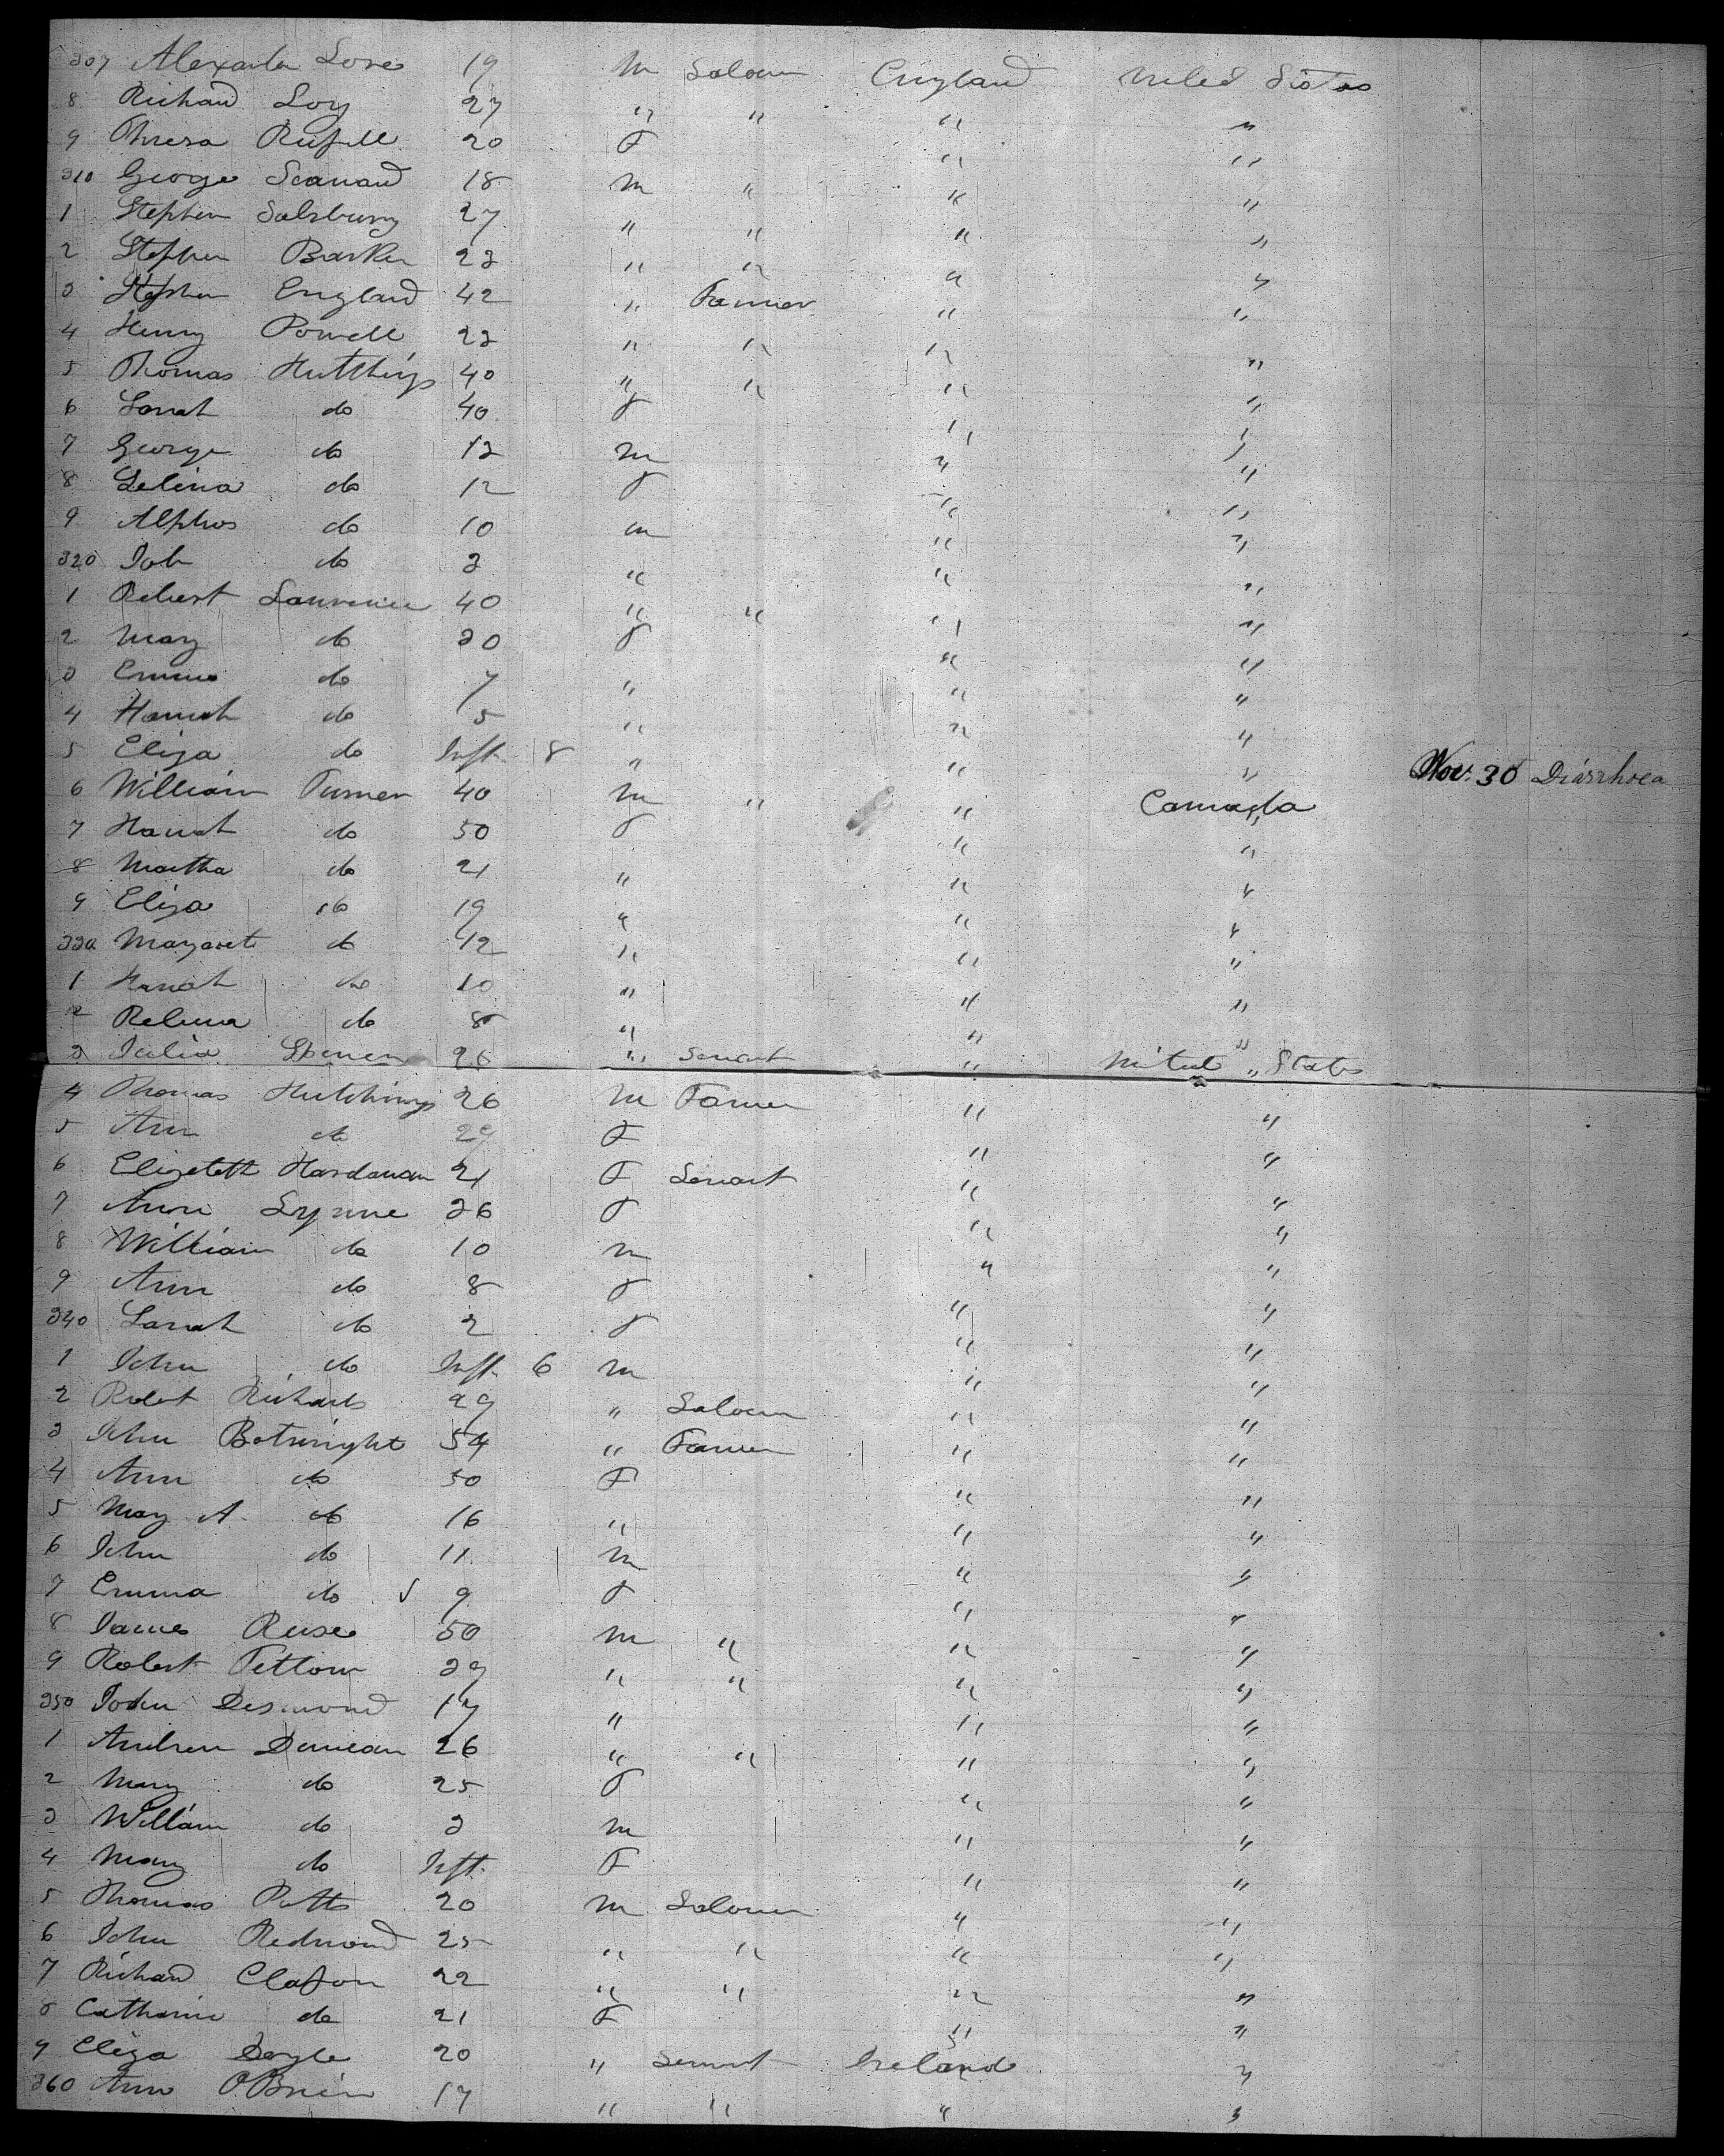 307 Alexander Love 19 m Laborer England United States
8 Richard Loy 27 " " " "
9 Theresa Russell 20 F " "
310 George Seaward 18 m " " "
1 Stephen Salsbury 27 " " " "
2 Stephen Barker 23 " " " "
3 Stephen England 42 " Farmer " "
4 Henry Powell 23 " " " "
5 Thomas Hutchings 40 " " " "
6 Sarah do 40 F " "
7 George do 13 m " "
8 Selina do 12 F " "
9 Alphus do 10 m " "
320 Job do 3 " " "
1 Robert Lawrence 40 " " " "
2 Mary do 30 F " "
3 Emma do 7 " " "
4 Hannah do 5 " " "
5 Eliza do Inft. 8 " " " Nov. 30 Diarrhoea
6 William Turner 40 m " " Canada
7 Hannah do 50 F " "
8 Martha do 21 " " "
9 Eliza do 19 " " "
330 Margaret do 12 " " "
1 Hannah do 10 " " "
2 do 8 " " "
3 Julia Spencer 26 " Servant " United States
4 Thomas Hutchings 26 m Farmer " "
5 Ann do 29 F " "
6 Elizabeth Hardaman 21 F Servant " "
7 Ann Lynne 36 F " "
8 William do 10 m " "
9 Ann do 8 F " "
340 Sarah do 2 F " "
1 John do Inft. 6 m " "
2 Robert Richards 29 " Laborer " "
3 John Botwright 54 " Farmer " "
4 Ann do 50 F " "
5 Mary A. do 16 " " "
6 John do 11 m " "
7 Emma do 9 F " "
8 James Reese 50 m " " "
9 Robert Tetlow 39 " " " "
350 John Desmond 17 " " "
1 Andrew Duncan 26 " " " "
2 Mary do 25 F " "
3 William do 3 m " "
4 Mary do Inft. F " "
5 Thomas Potts 20 m Laborer " "
6 John Redmond 25 " " " "
7 Richard Clapon 22 " " " "
8 Catharine do 21 F " "
9 Eliza Doyle 20 " Servant Ireland "
360 Ann O'Brien 17 " " " "